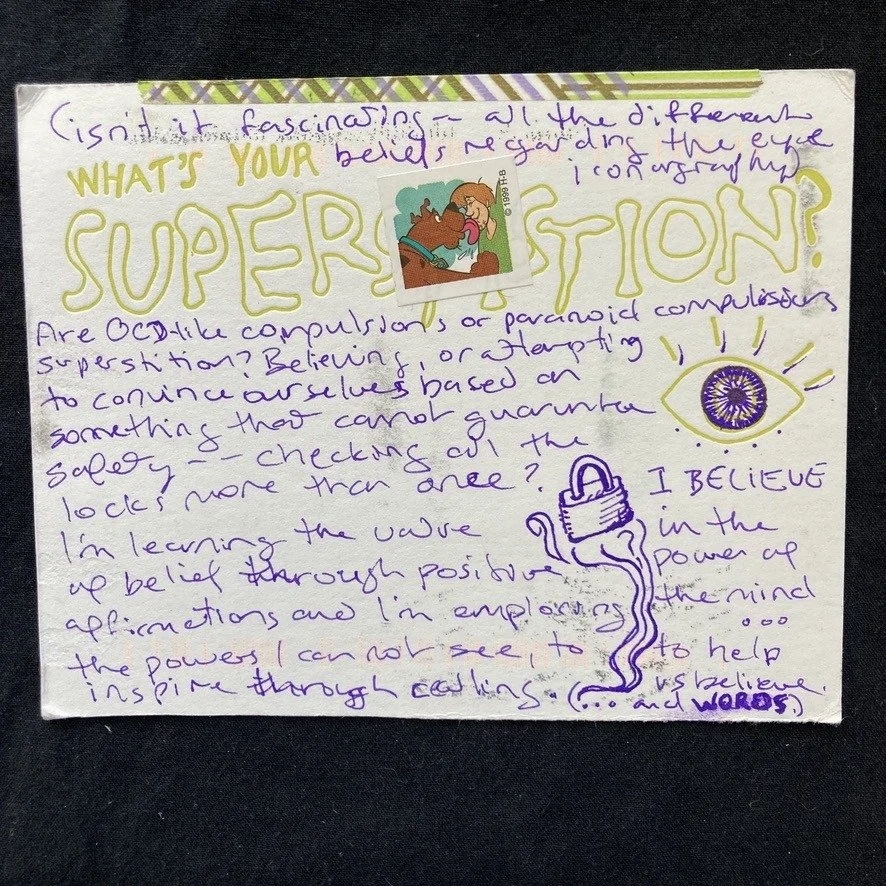 (isn't it fascinating - all the different
beliefs regarding the eye
iconography)
WHAT'S YOUR
SUPERSTITION?
© 1999 H-B
Are OCD-like compulsions or paranoid compulsions
superstition? Believing, or attempting
to convince ourselves based on
something that cannot guarantee
safety -- checking all the
locks more than once?
I'm learning the value
of belief through positive
affirmations and I'm employing
the powers I can not see, to
inspire through calling.
I BELIEVE
in the
power of
the mind
...
to help
us believe.
(... and WORDS.)